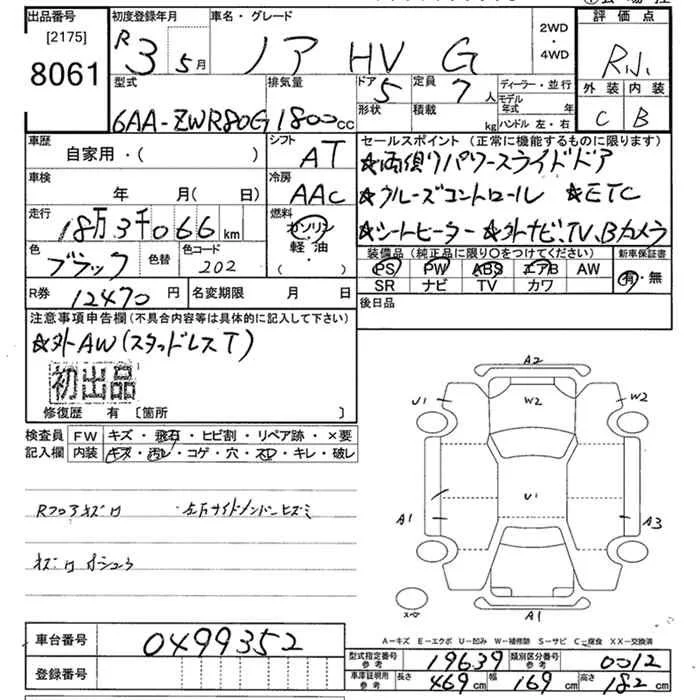 出品番号
[2175]
8061
初度登録年月
R3 5月
車名・グレード
ノア HV G
2WD
・
4WD
評価点
R小
外装 内装
C B
型式
6AA-ZWR80G
排気量
1800cc
ドア 5
形状
定員 7人
積載 kg
ディーラー・並行
モデル年式 年
ハンドル 左・右
車歴
自家用・( )
シフト
AT
車検
年 月
冷房
AAC
走行
18万3千066km
燃料
ガソリン
軽油
・( )
色
ブラック
色替
色コード
202
R券 12470円
名変期限 月 日
セールスポイント(正常に機能するものに限ります)
☆両側パワースライドドア
☆クルーズコントロール ☆ETC
☆シートヒーター ☆外ナビ、TV、Bカメラ
装備品(純正品に限り〇をつけてください)
PS PW ABS エアB AW
SR ナビ TV カワ
新車保証書
有・無
後日品
注意事項申告欄(不具合内容等は具体的に記入して下さい)
☆外AW(スタッドレスT)
初出品
修復歴 有 〔箇所 〕
検査員
記入欄
FW キズ・飛石・ヒビ割・リペア跡・×要
内装 キズ・汚レ・コゲ・穴・スレ・キレ・破レ
A2
U1 W2 W2
A1 U1 A3
A1
A-キズ E-エクボ U-凹み W-補修跡 S-サビ C-腐食 XX-交換済
車台番号 0499352
登録番号
型式指定番号
参考
19639
類別区分番号
参考
0012
車庫証明用
参考
長さ 469cm 幅 169cm 高さ 182cm